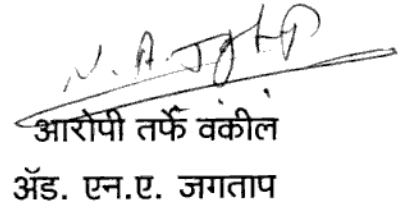 N. A. Jgtp
आरोपी तर्फे वकील
ॲड. एन.ए. जगताप